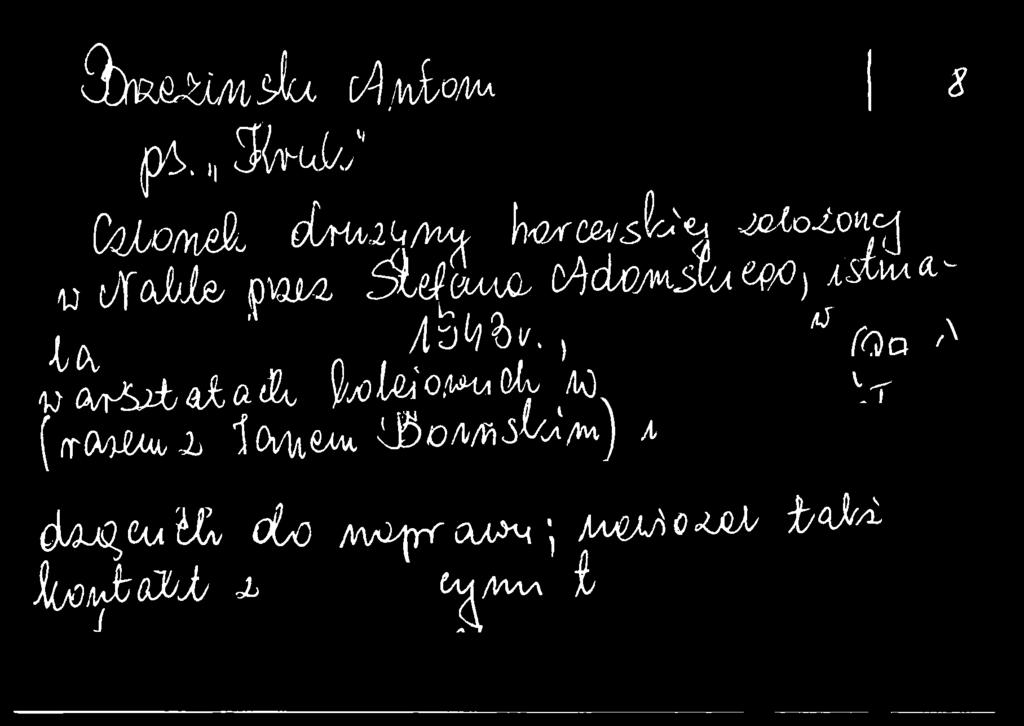 Brzeziński Antoni | 8
ps. „Kruk"
Członek drużyny harcerskiej założonej
w Nakle przez Stefana Adamskiego, istnia-
ła 1943 r., w
warsztatach kolejowych w
(razem z Janem Bonińskim) i
do naprawy; nawiązał także
kontakt z